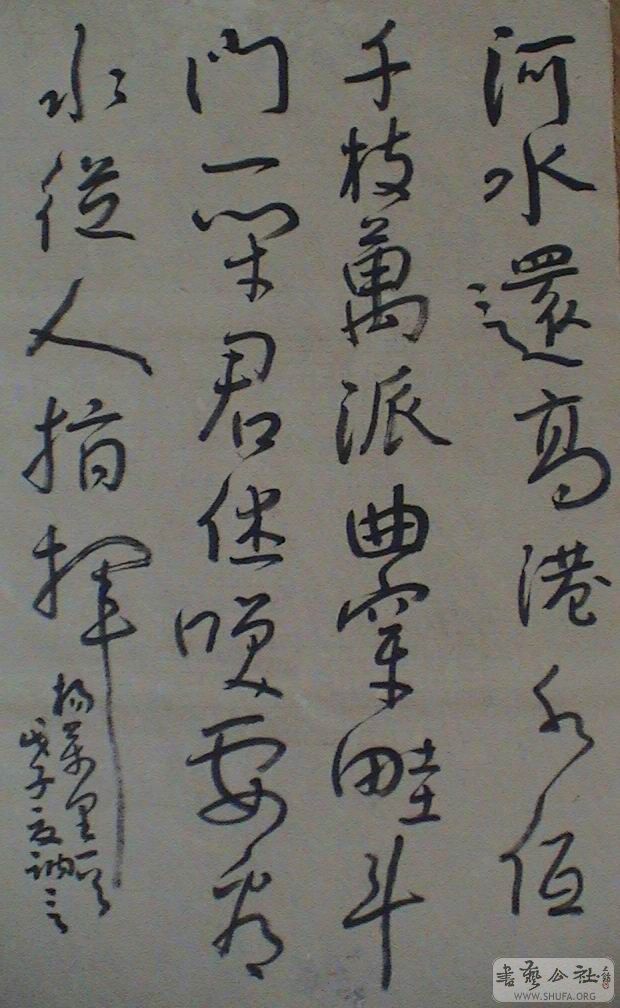 河水還高港水低
千枝萬派曲穿畦斗
門一閉君休咲要看
水從人指揮
楊萬里詩
戊子夏訥言
書藝公社
WWW.SHUFA.ORG